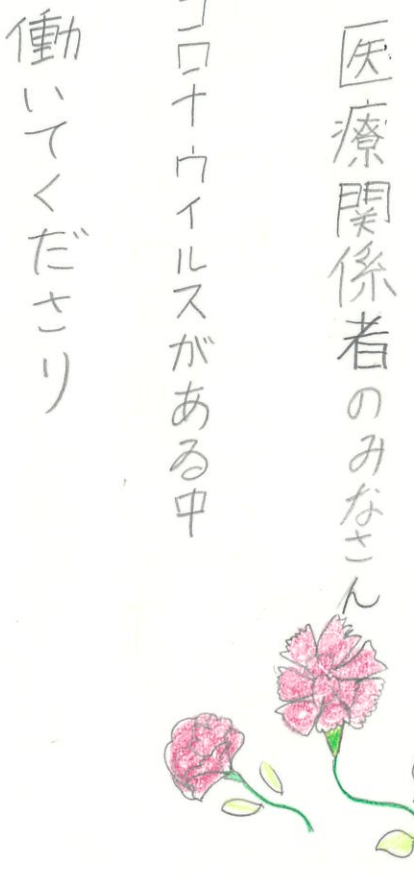 医療関係者のみなさん
コロナウイルスがある中
働いてくださり